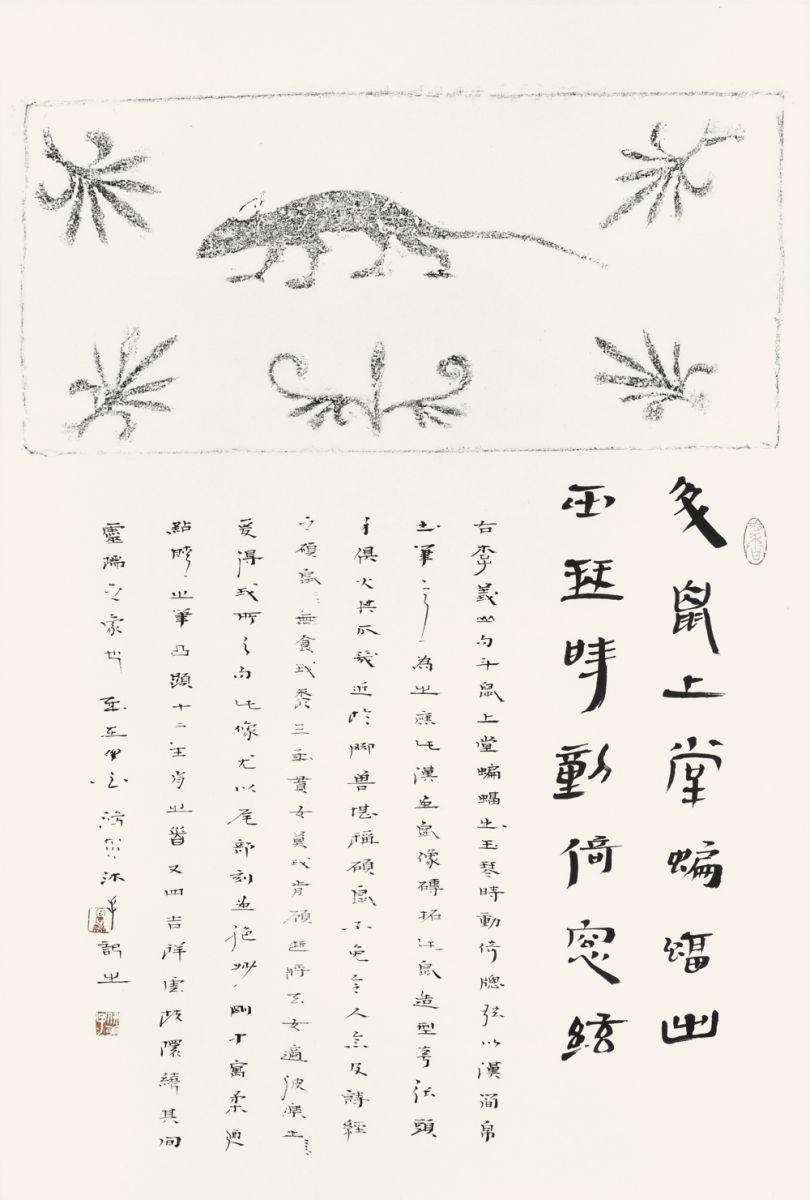 斗鼠上堂蝙蝠出
玉琴時動倚窗絃
右李義山句斗鼠上堂蝙蝠出玉琴時動倚牕弦以漢簡帛
書筆之為之應此漢畫鼠像磚拓此鼠造型夸張頭
俱大其爪幾近於腳獸堪稱碩鼠不免令人念及詩經
之碩鼠〻無食我黍三歲貫女莫我肯顧逝將去女適彼樂土〻
爰得我所之句此像尤以尾部刻畫絕妙剛中寓柔迺
點睛之筆凸顯十二生肖之首又四吉祥雲紋環繞其間
靈瑞之象也 沐手記之